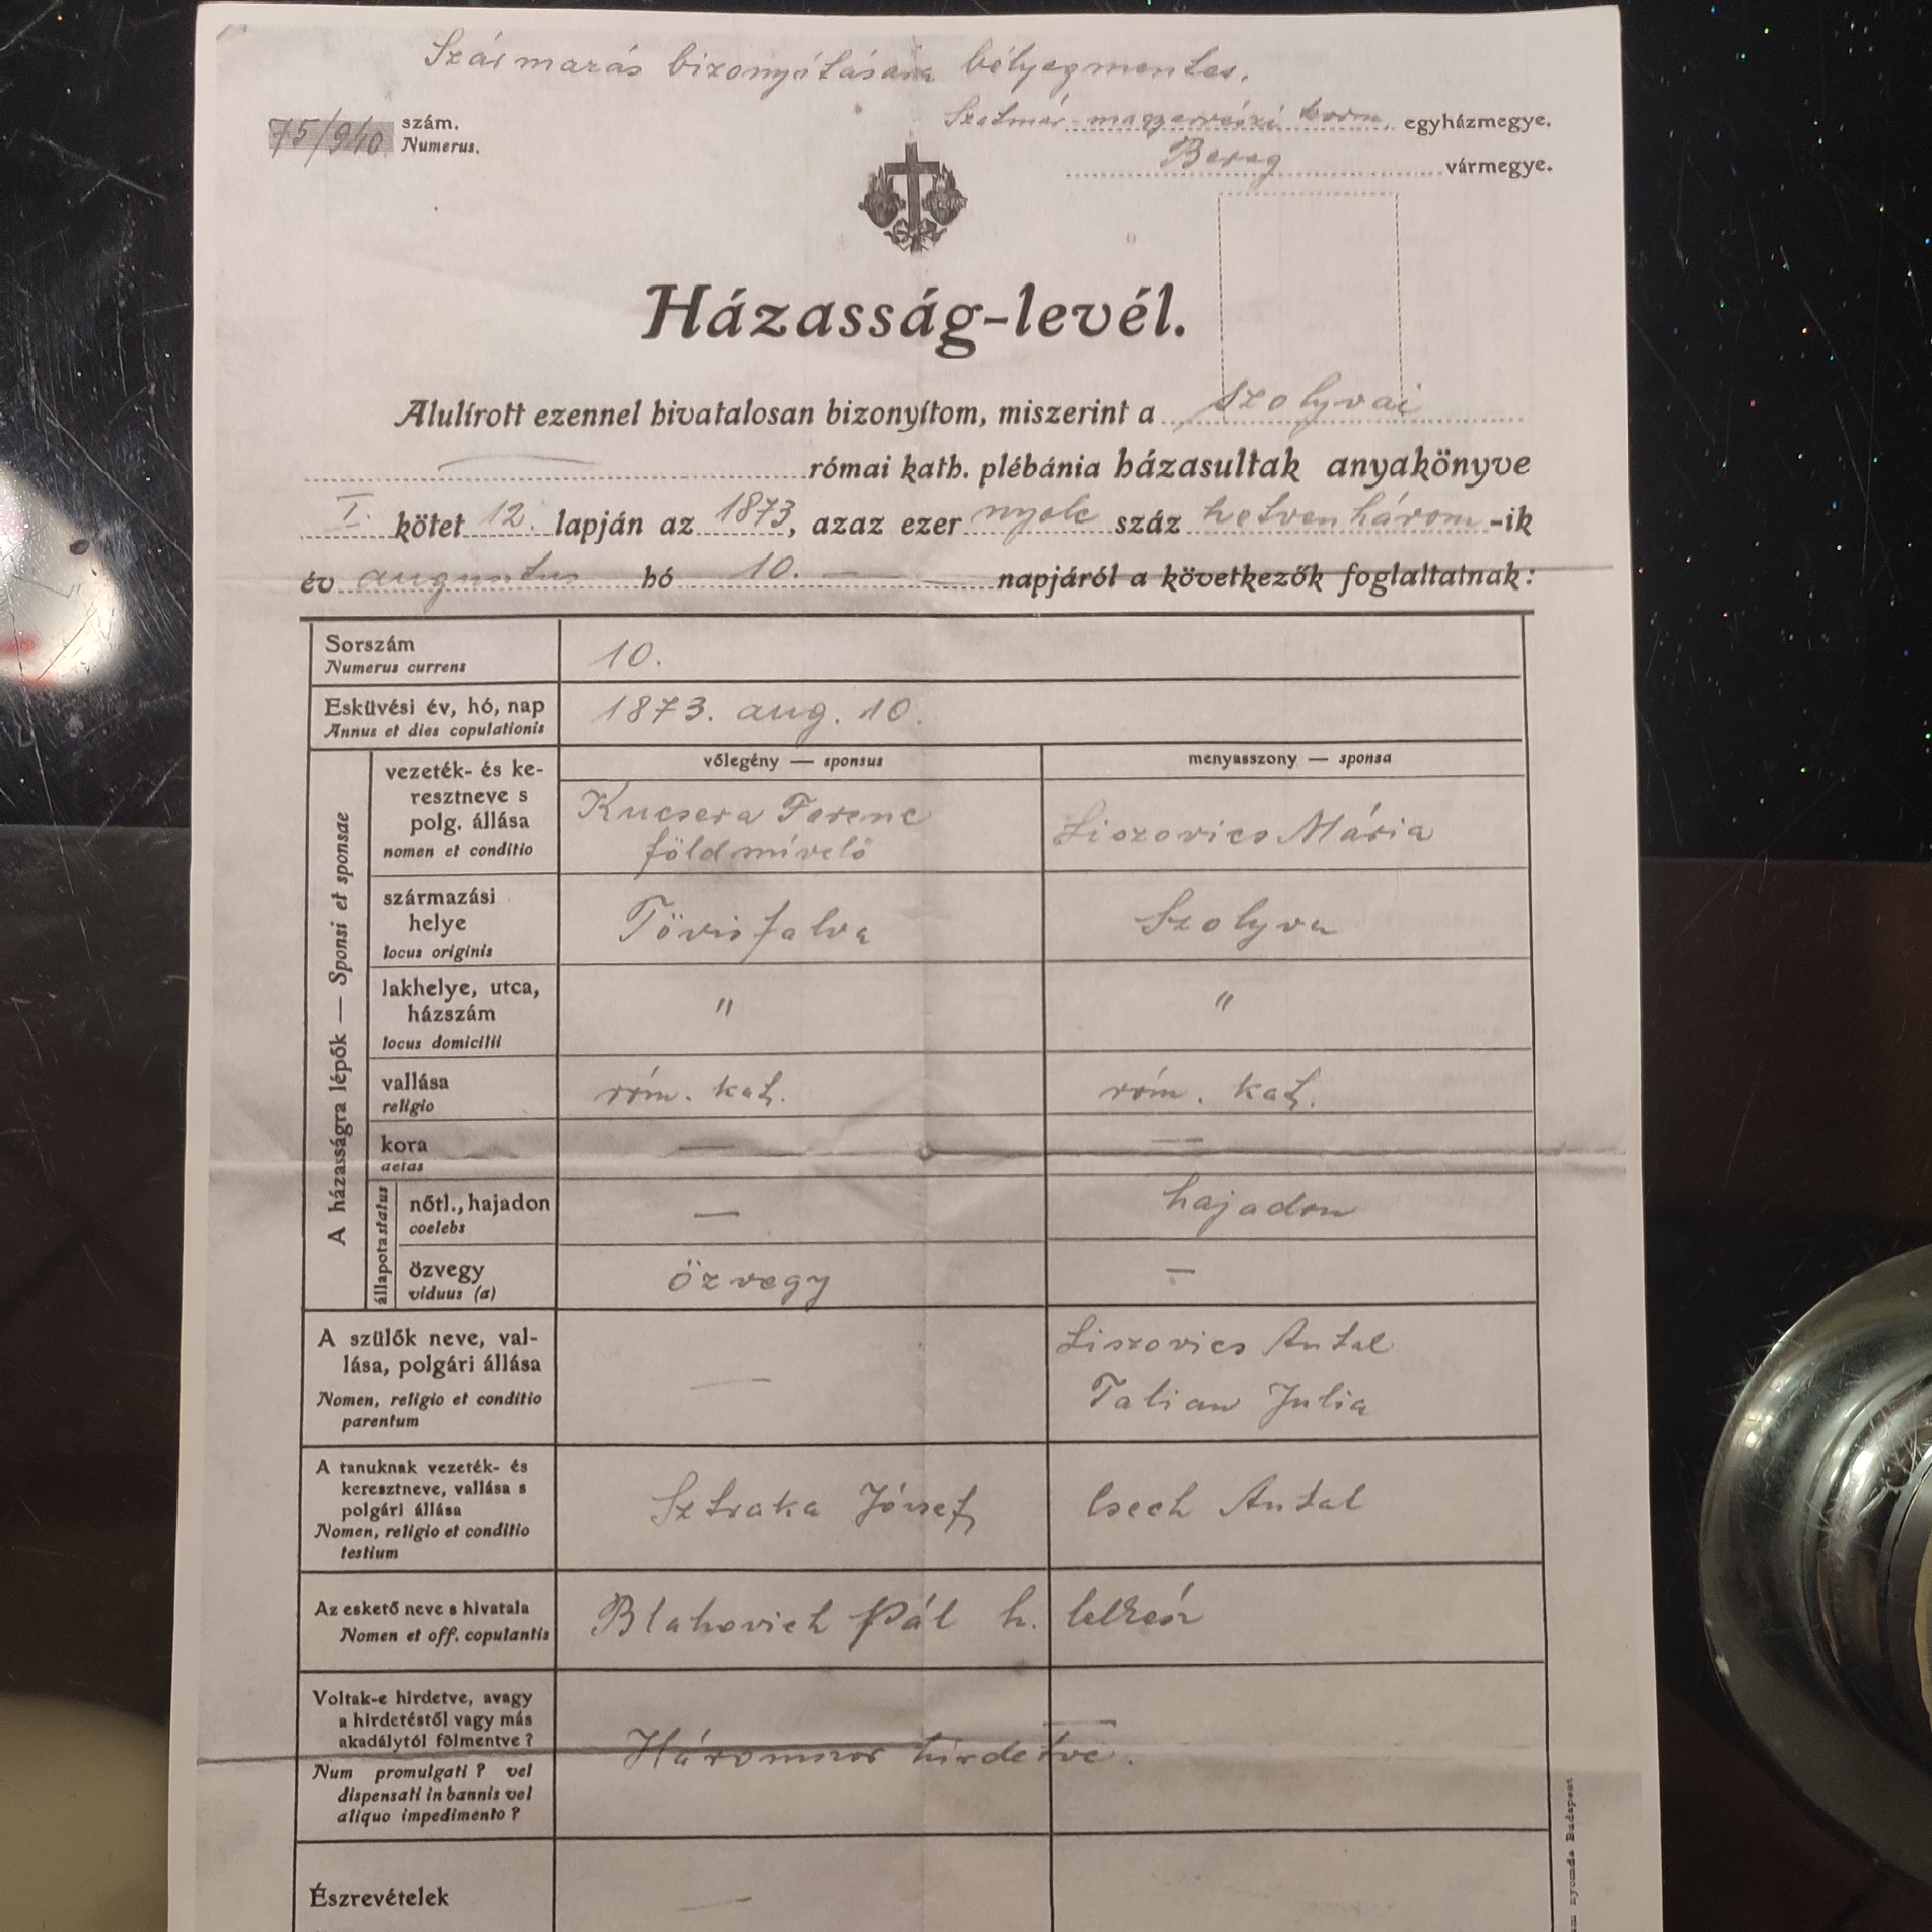 Származás bizonyítására bélyegmentes.
75/940 szám.
Numerus.
Szatmár magyarrészi korm. egyházmegye.
Bereg vármegye.
Házasság-levél.
Alulírott ezennel hivatalosan bizonyítom, miszerint a szolyvai
római kath. plébánia házasultak anyakönyve
I. kötet 12. lapján az 1873, azaz ezer nyolc száz hetvenhárom-ik
év augusztus hó 10. — napjáról a következők foglaltatnak:
Sorszám
Numerus currens
10.
Esküvési év, hó, nap
Annus et dies copulationis
1873. aug. 10.
A házasságra lépők — Sponsi et sponsae
vőlegény — sponsus
menyasszony — sponsa
vezeték- és ke-
resztneve s
polg. állása
nomen et conditio
Kucsera Ferenc
földmívelő
Liszovics Mária
származási
helye
locus originis
Tövisfalva
Szolyva
lakhelye, utca,
házszám
locus domicilii
"
"
vallása
religio
róm. kat.
róm. kat.
kora
aetas
—
—
állapota status
nőtl., hajadon
coelebs
—
hajadon
özvegy
viduus (a)
özvegy
—
A szülők neve, val-
lása, polgári állása
Nomen, religio et conditio
parentum
—
Liszovics Antal
Talian Julia
A tanuknak vezeték- és
keresztneve, vallása s
polgári állása
Nomen, religio et conditio
testium
Sztraka József
Csech Antal
Az eskető neve s hivatala
Nomen et off. copulantis
Blahovich Pál h. lelkész
Voltak-e hirdetve, avagy
a hirdetéstől vagy más
akadálytól fölmentve?
Num promulgati? vel
dispensati in bannis vel
aliquo impedimento?
Háromszor hirdetve.
Észrevételek
—
nyomda Budapest